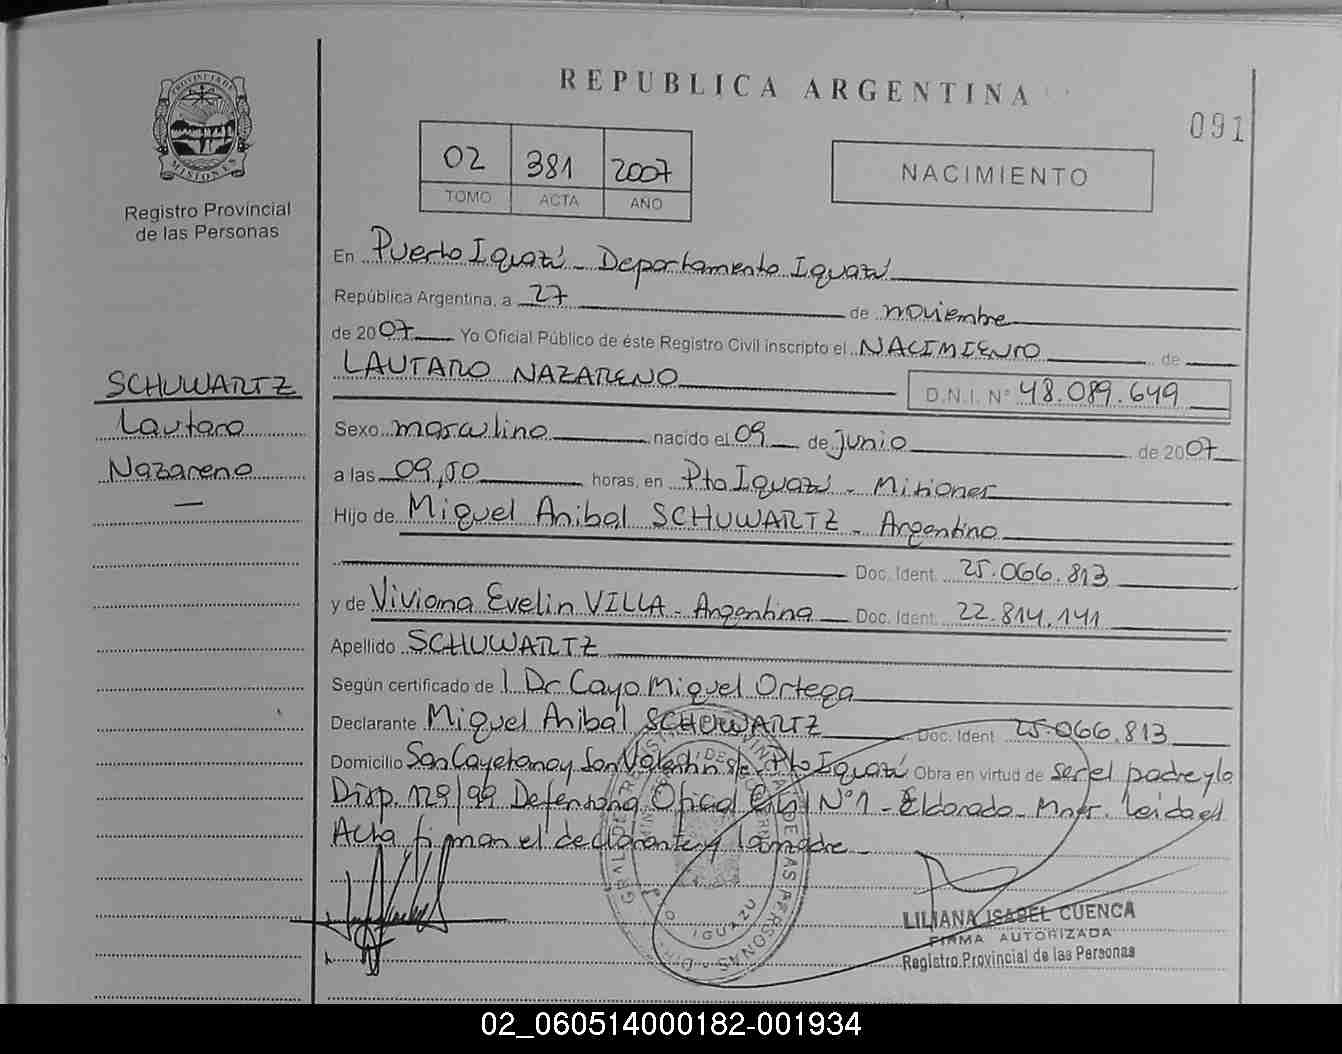 REPUBLICA ARGENTINA
091
02 381 2007
TOMO ACTA AÑO
NACIMIENTO
PROVINCIA DE MISIONES
Registro Provincial
de las Personas
SCHUWARTZ
Lautaro
Nazareno
En Puerto Iguazú - Departamento Iguazú
República Argentina, a 27 de noviembre
de 2007 Yo Oficial Público de éste Registro Civil inscripto el NACIMIENTO de
LAUTARO NAZARENO D.N.I. N° 48.089.649
Sexo masculino nacido el 09 de junio de 2007
a las 09,50 horas, en Pto Iguazú - Misiones
Hijo de Miguel Anibal SCHUWARTZ - Argentino
Doc. Ident. 25.066.813
y de Viviana Evelin VILLA - Argentina Doc. Ident. 22.814.141
Apellido SCHUWARTZ
Según certificado de l Dr Cayo Miguel Ortega
Declarante Miguel Anibal SCHUWARTZ Doc. Ident 25.066.813
Domicilio San Cayetano y San Valentin de Pto Iguazú Obra en virtud de ser el padre y la
Disp. 129/99 Defensoria Oficial Civil N°1 - Eldorado - Mnes. Leida el
Acta firman el declarante y la madre -
LILIANA ISABEL CUENCA
FIRMA AUTORIZADA
Registro Provincial de las Personas
IGUAZU
02_060514000182-001934